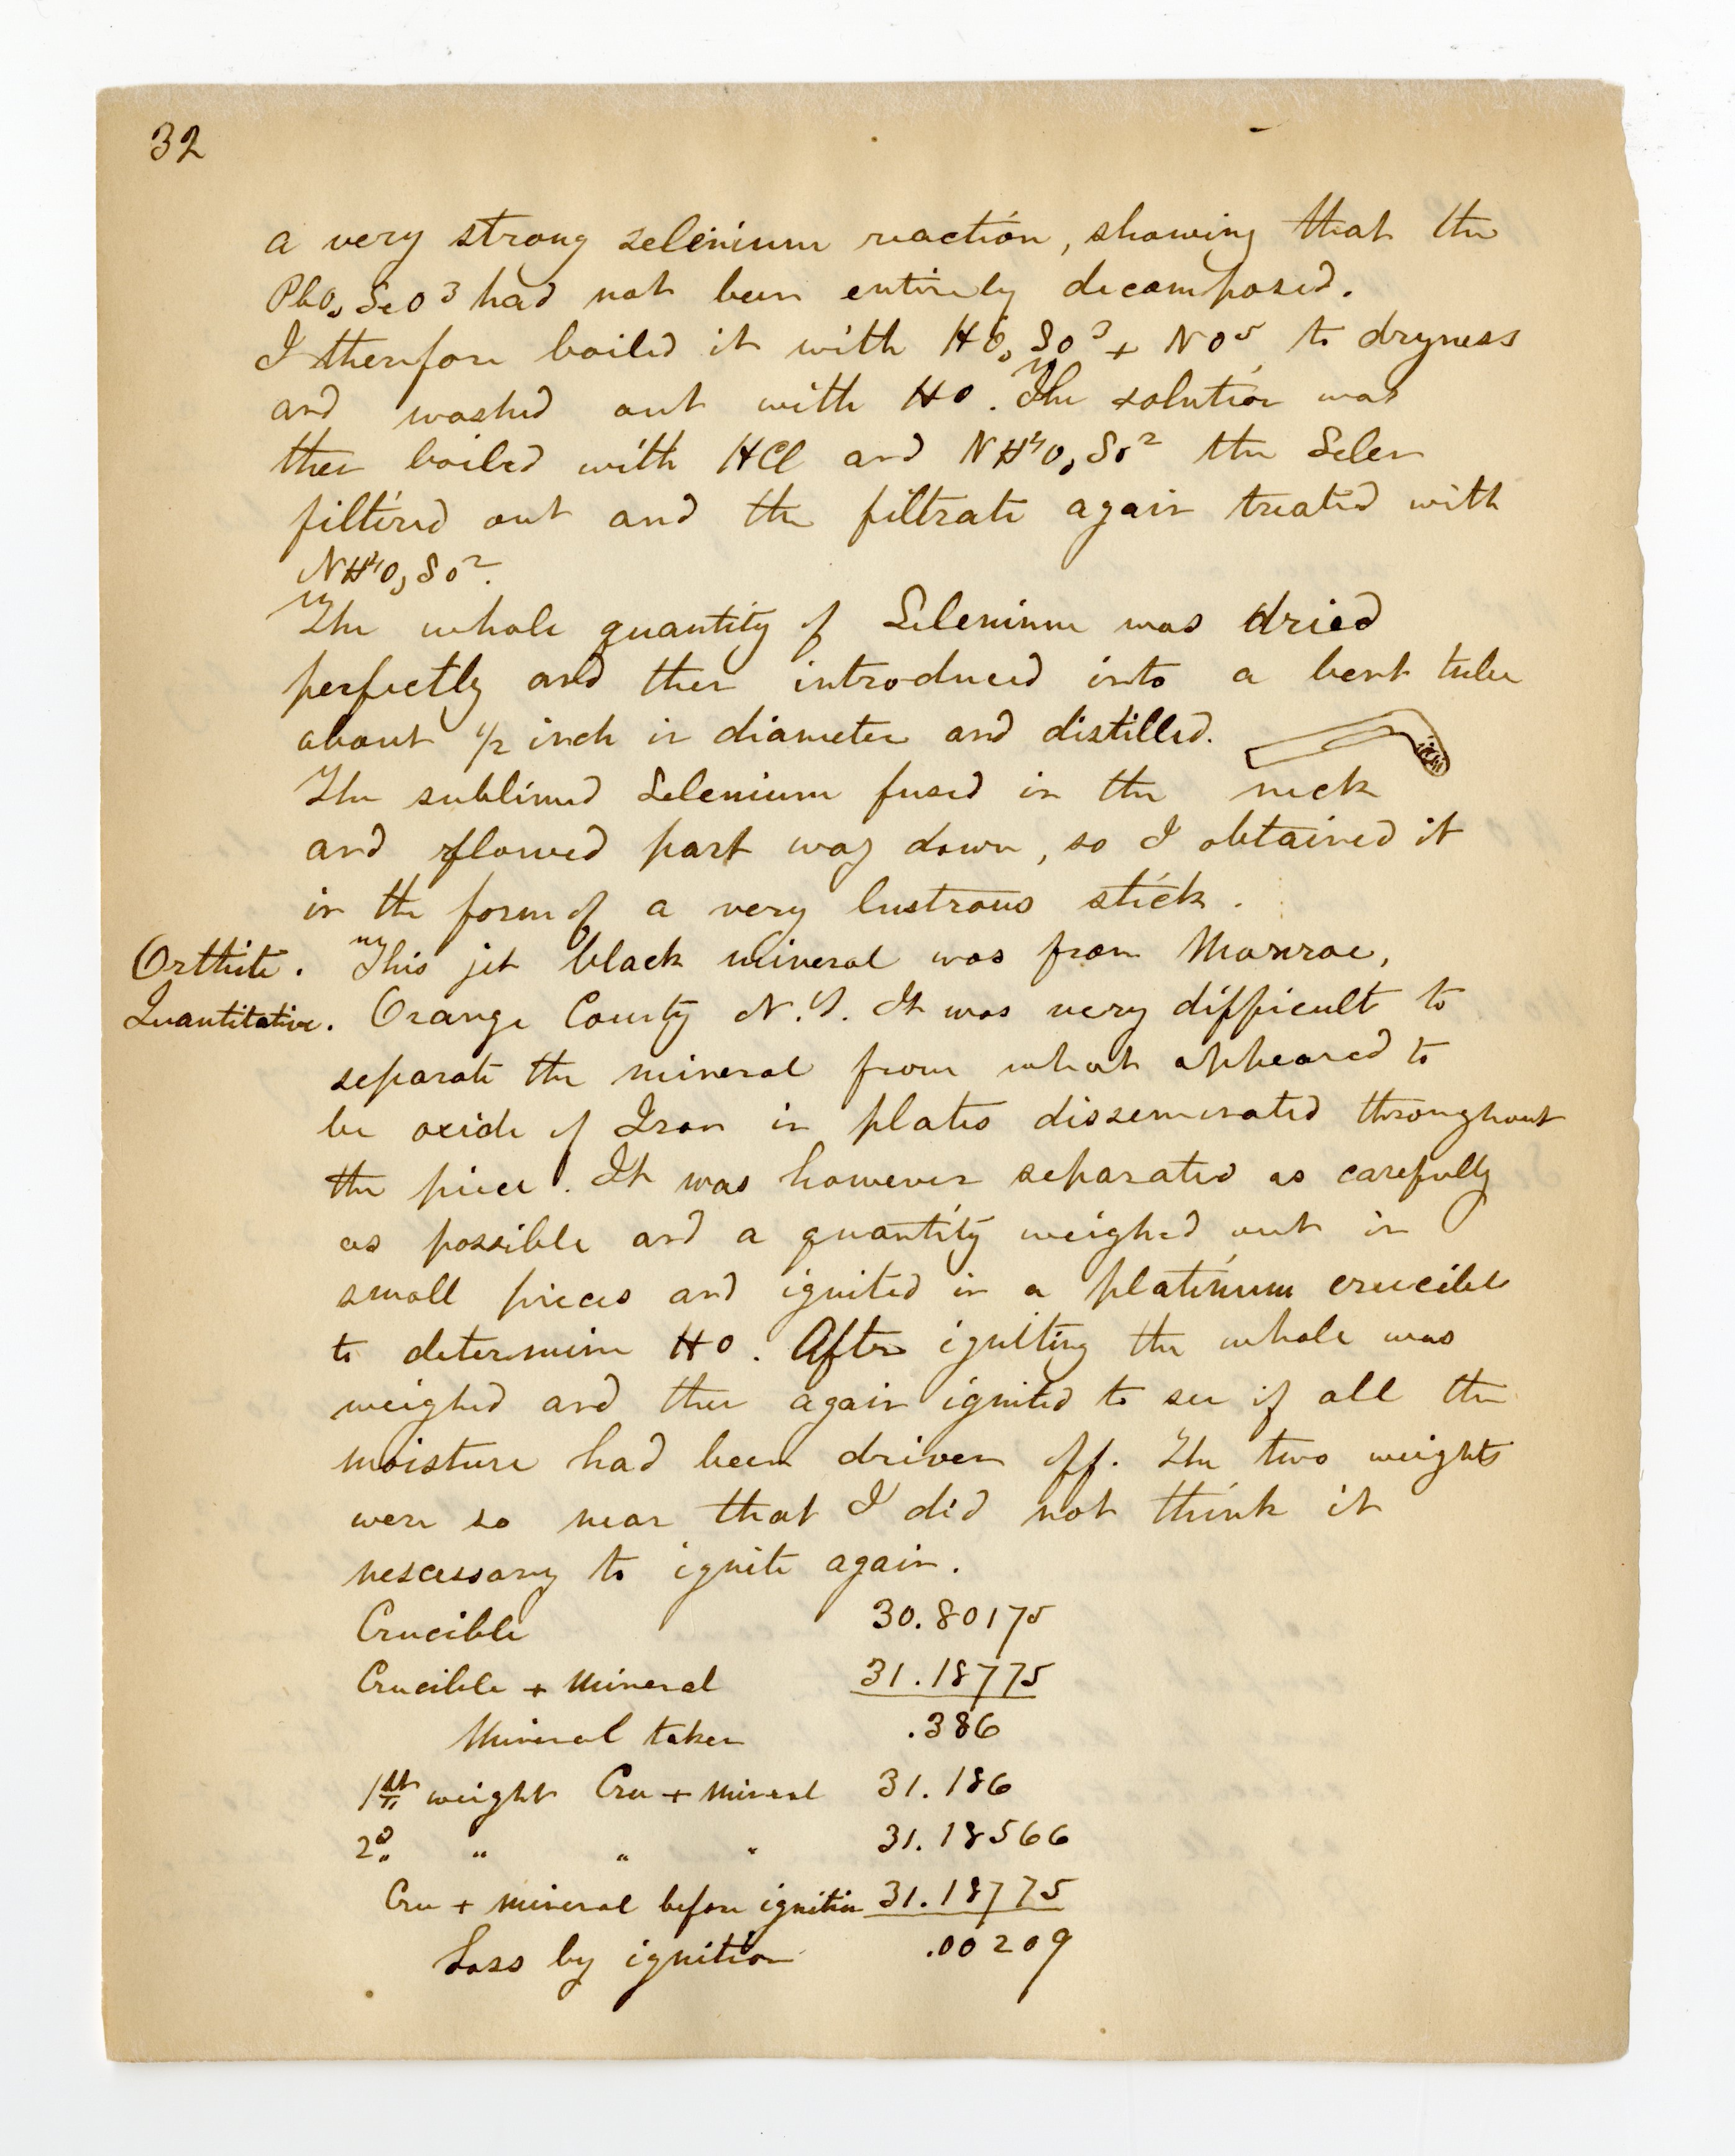 32
a very strong selenium reaction, showing that the
PbO, SeO³ had not been entirely decomposed.
I therefore boiled it with HO, SO³ + NO⁵ to dryness
and washed out with HO. The solution was
then boiled with HCl and NH⁴O, SO² the Selen
filtered out and the filtrate again treated with
NH⁴O, SO².
The whole quantity of Selenium was dried
perfectly and then introduced into a bent tube
about 1/2 inch in diameter and distilled.
The sublimed Selenium fused in the neck
and flowed part way down, so I obtained it
in the form of a very lustrous stick.
Orthite. This jet black mineral was from Monroe,
Quantitative. Orange County N.Y. It was very difficult to
separate the mineral from what appeared to
be oxide of Iron in plates disseminated throughout
the piece. It was however separated as carefully
as possible and a quantity weighed out in
small pieces and ignited in a platinum crucible
to determine HO. After igniting the whole was
weighed and then again ignited to see if all the
moisture had been driven off. The two weights
were so near that I did not think it
nescessary to ignite again.
Crucible 30.80175
Crucible + Mineral 31.18775
Mineral taken .386
1st weight Cru + Mineral 31.186
2d " " " 31.18566
Cru + Mineral before ignition 31.18775
Loss by ignition .00209